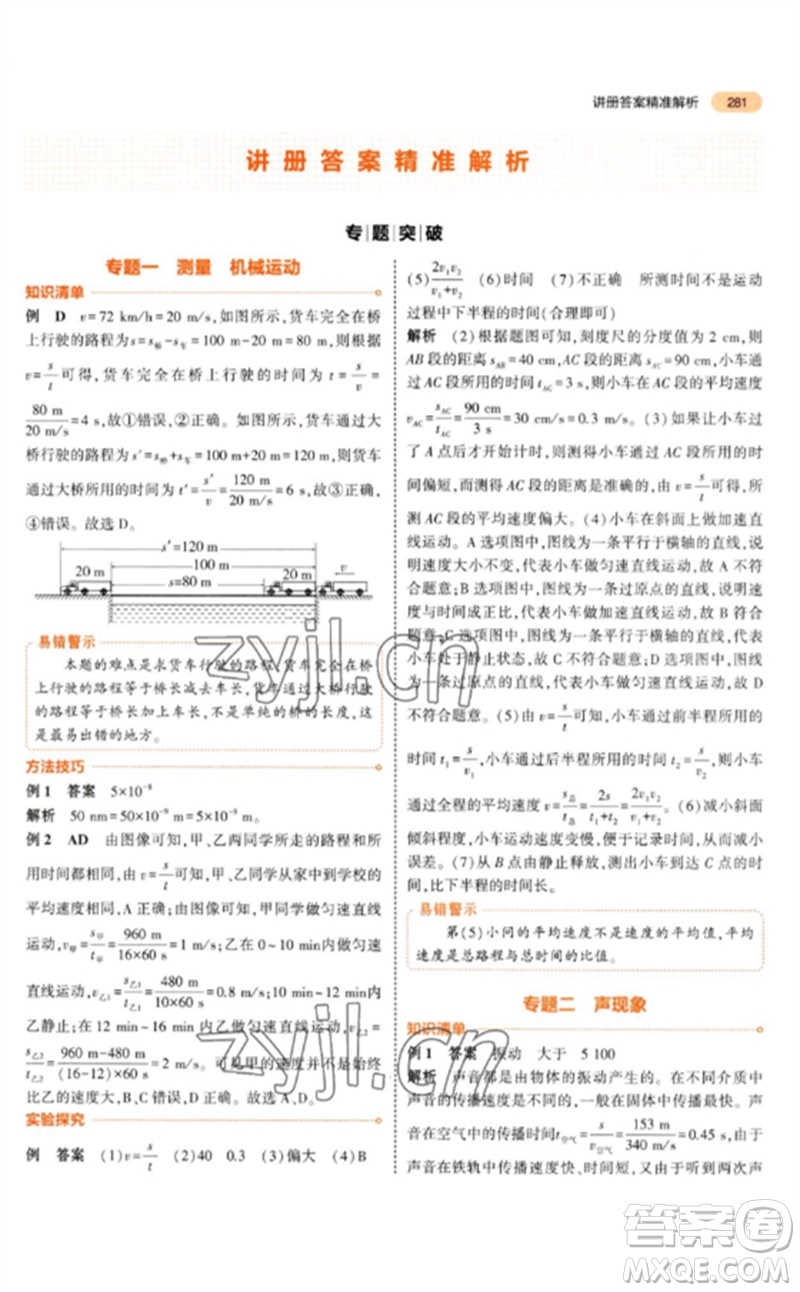 讲册答案精准解析 281
讲册答案精准解析
专题突破
专题一 测量 机械运动
知识清单
例 D v=72 km/h=20 m/s,如图所示,货车完全在桥
上行驶的路程为s=s桥-s车=100 m-20 m=80 m,根据
v=s/t可得,货车完全在桥上行驶的时间为 t=s/v=
80 m/20 m/s=4 s,故①错误,②正确。如图所示,货车通过大
桥行驶的路程为s′=s桥+s车=100 m+20 m=120 m,货车
通过大桥所用的时间为 t′=s′/v=120 m/20 m/s=6 s,故③正确,
④错误。故选D。
s′=120 m
100 m
20 m s=80 m 20 m v
易错警示
本题的难点是求货车行驶的路程,货车完全在桥
上行驶的路程等于桥长减去车长,货车通过大桥行驶
的路程等于桥长加上车长,不是单纯的桥的长度,这
是最易出错的地方。
方法技巧
例1 答案 5×10⁻⁸
解析 50 nm=50×10⁻⁹ m=5×10⁻⁸ m。
例2 AD 由图像可知,甲、乙两同学所走的路程和所
用时间都相同,由v=s/t可知,两同学从家中到学校的
平均速度相同,A正确;由图可知,甲同学做匀速直线
运动,v甲=s甲/t甲=960 m/16×60 s=1 m/s;乙在0~10 min内做匀速
直线运动,v乙1=s乙1/t乙1=480 m/10×60 s=0.8 m/s;10~12 min内
乙静止;在12 min~16 min内乙做匀速直线运动,v乙2=
s乙2/t乙2=960 m-480 m/(16-12)×60 s=2 m/s。可见甲的速度并不始终
比乙的速度大,B、C错误,D正确。故选A、D。
实验探究
例 答案 (1)v=s/t (2)40 0.3 (3)偏大 (4)B
(5)2v₁v₂/v₁+v₂ (6)时间 (7)不正确 所测时间不是运动
过程中下半程的时间(合理即可)
解析 (2)根据题图可知,刻度尺的分度值为2 cm,则
AB段的距离sAB=40 cm,AC段的距离sAC=90 cm,小车通
过AC段所用的时间tAC=3 s,则AC段的平均速度
vAC=sAC/tAC=90 cm/3 s=30 cm/s=0.3 m/s。(3)如果让小车过
了A点后才开始计时,则测得小车通过AC段所用的时
间偏短,而测量AC段的距离是准确的,由v=s/t可得,所
测AC段的平均速度偏大。(4)小车在斜面上做加速直
线运动。A选项图中,图像为一条平行于横轴的直线,
说明速度大小不变,代表小车做匀速直线运动,A不符
合题意;B选项图中,图像为过原点的直线,代表小车的
速度与时间成正比,代表小车做加速直线运动,B符合
题意;C选项图中,图像为一条平行于横轴的直线,代表
小车处于静止状态,故C不符合题意;D选项图中,图像
为一条过原点的直线,代表小车做匀速直线运动,故D
不符合题意。(5)由v=s/t可知,小车通过前半程所用的
时间t₁=s/v₁,小车通过后半程所用的时间t₂=s/v₂,则小车
通过全程的平均速度v=s总/t总=2s/t₁+t₂=2v₁v₂/v₁+v₂。(6)减小斜面
倾斜程度,小车运动速度变慢,便于记录时间,从而减小
误差。(7)从B点由静止释放,测出小车到达C点的时间,
比下半程的时间长。
易错警示
第(5)小问的平均速度不是速度的平均值,平均
速度是总路程与总时间的比值。
专题二 声现象
知识清单
例1 答案 振动 大于 5 100
解析 声音都是由物体的振动产生的。在不同介质中
声音的传播速度不同,一般在固体中传播最快。
声音在空气中的传播时间t空气=s/v空气=153 m/340 m/s=0.45 s,
声音在铁轨中传播速度快、时间短,又由于听到两次声
zyjl.cn
zyjl.cn
答案卷